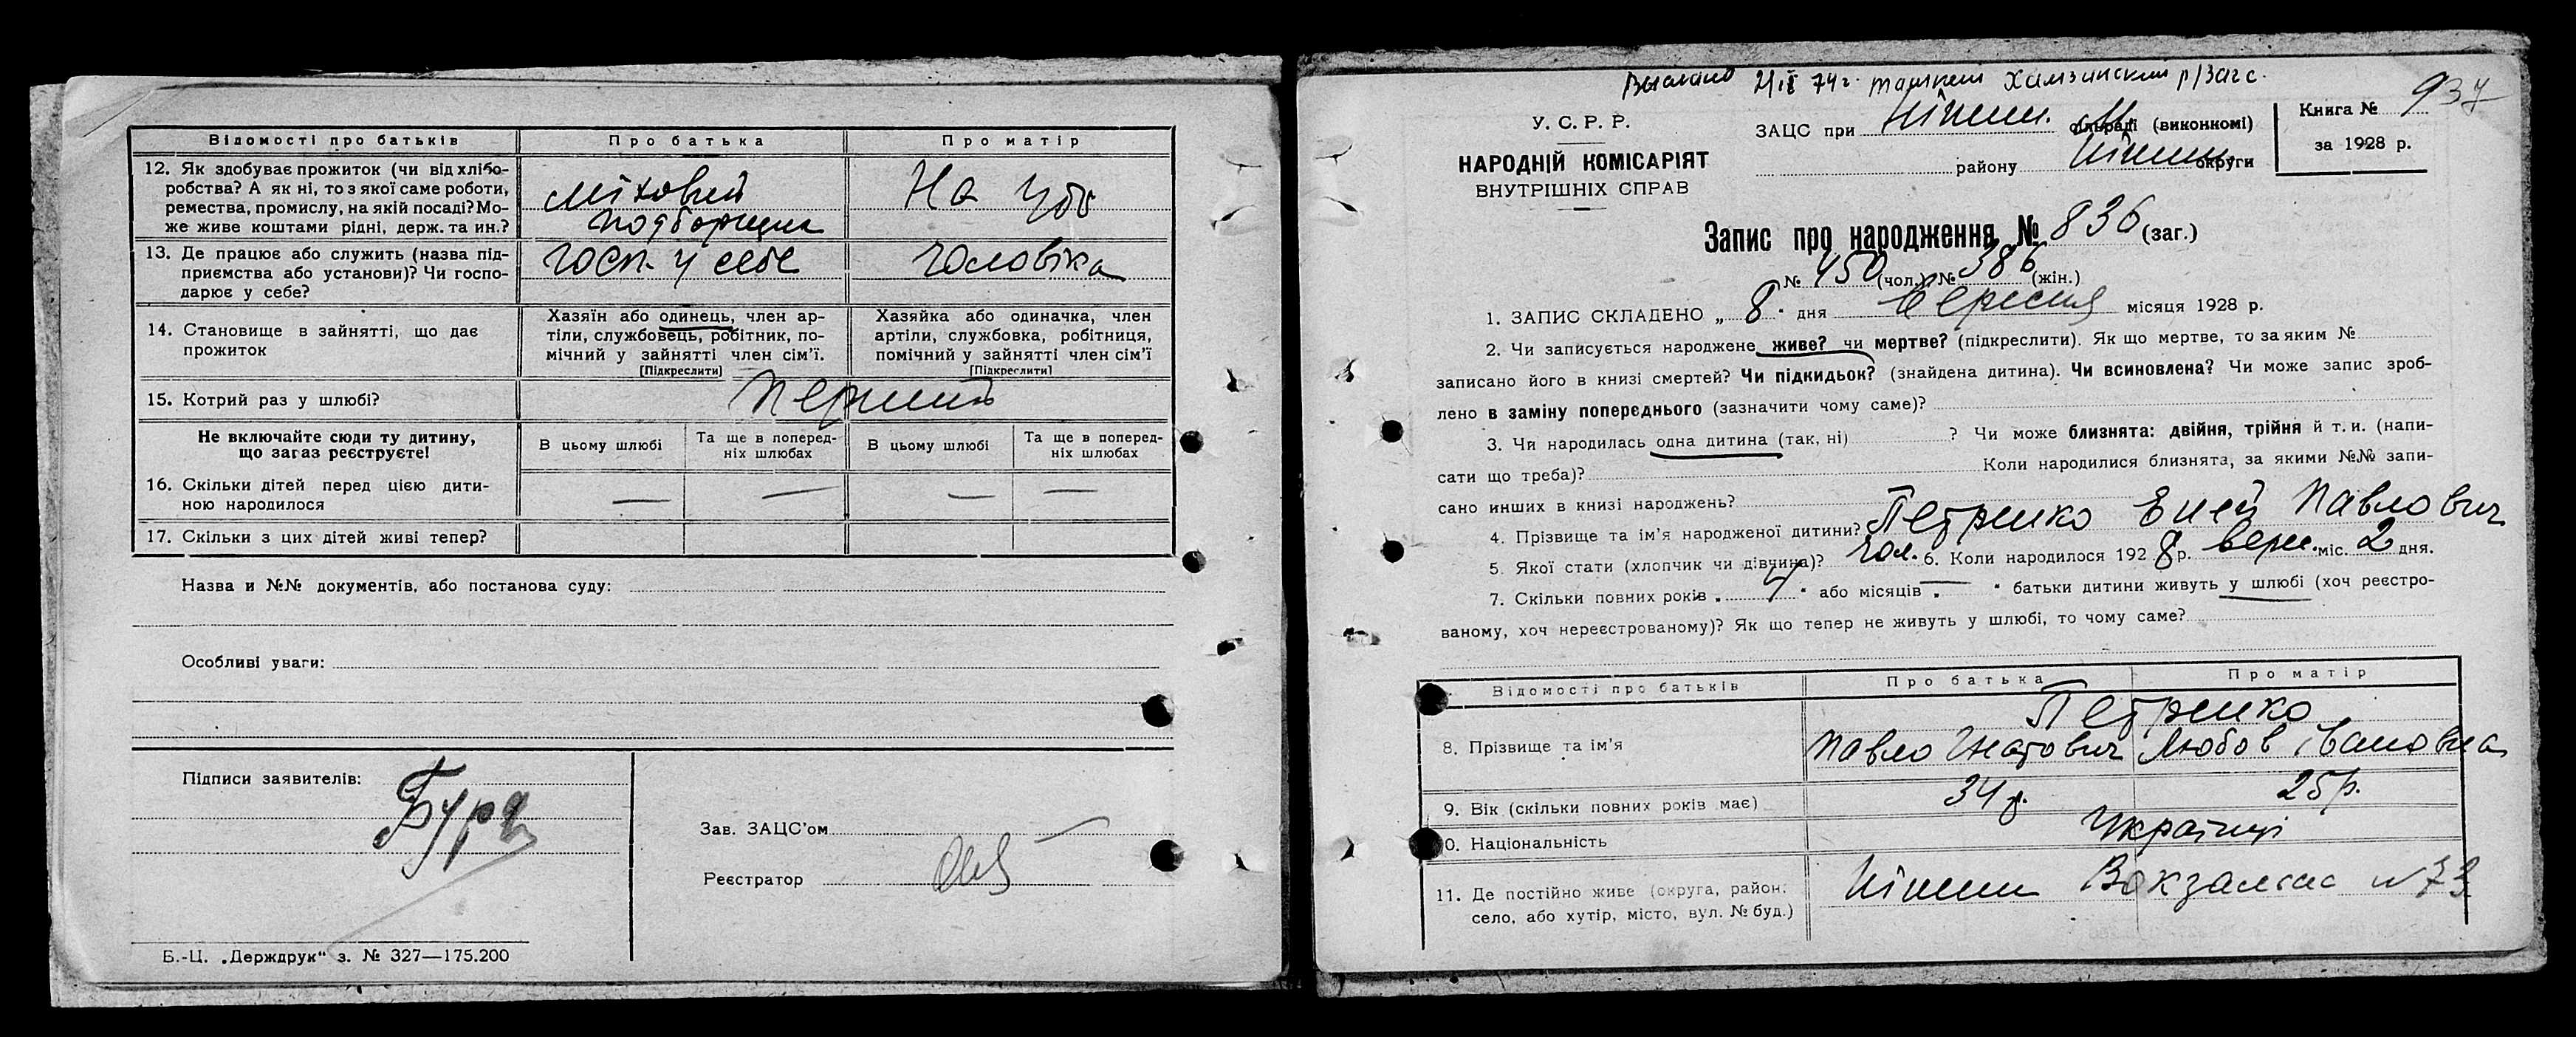 Відомості про батьків Про батька Про матір
12. Як здобуває прожиток (чи від хлібо-
робства? А як ні, то з якої саме роботи,
ремества, промислу, на якій посаді? Мо-
же живе коштами рідні, держ. та ин.?
На
13. Де працює або служить (назва під-
приємства або установи)? Чи госпо-
дарює у себе?
госп. у себе чоловіка
14. Становище в зайнятті, що дає
прожиток
Хазяїн або одинець, член ар-
тіли, службовець, робітник, по-
мічний у зайнятті член сім'ї.
[Підкреслити]
Хазяйка або одиначка, член
артіли, службовка, робітниця,
помічний у зайнятті член сім'ї
[Підкреслити]
15. Котрий раз у шлюбі? перший
Не включайте сюди ту дитину,
що зараз реєструєте!
В цьому шлюбі
Та ще в поперед-
ніх шлюбах
В цьому шлюбі
Та ще в поперед-
ніх шлюбах
16. Скільки дітей перед цією дити-
ною народилося
— — — —
17. Скільки з цих дітей живі тепер?
Назва и №№ документів, або постанова суду:
Особливі уваги:
Підписи заявителів:
Зав. ЗАЦС'ом
Реєстратор
Б.-Ц. „Держдрук" з. № 327—175.200
Выслано 74г. Хамзинский р/Загс.
937
У. С. Р. Р.
НАРОДНІЙ КОМІСАРІЯТ
ВНУТРІШНІХ СПРАВ
ЗАЦС при Ніжин. сільраді (виконкомі)
району Ніжин округи
Книга №
за 1928 р.
Запис про народження № 836 (заг.)
№ 450 (чол.) № 386 (жін.)
1. ЗАПИС СКЛАДЕНО „ 8 " дня Вересня місяця 1928 р.
2. Чи записується народжене живе? чи мертве? (підкреслити). Як що мертве, то за яким №
записано його в книзі смертей? Чи підкидьок? (знайдена дитина). Чи всиновлена? Чи може запис зроб-
лено в заміну попереднього (зазначити чому саме)?
3. Чи народилась одна дитина (так, ні) ? Чи може близнята: двійня, трійня й т. и. (напи-
сати що треба)? Коли народилися близнята, за якими №№ запи-
сано инших в книзі народжень?
4. Прізвище та ім'я народженої дитини? Петренко Еней Павлович
5. Якої стати (хлопчик чи дівчина)? чол. 6. Коли народилося 1928 р. верес. міс. 2 дня.
7. Скільки повних років „ 4 " або місяців „ — " батьки дитини живуть у шлюбі (хоч реєстро-
ваному, хоч нереєстрованому)? Як що тепер не живуть у шлюбі, то чому саме?
Відомості про батьків Про батька Про матір
Петренко
8. Прізвище та ім'я Павло Гнатович Любов Івановна
9. Вік (скільки повних років має) 34 р. 25 р.
0. Національність Українці
11. Де постійно живе (округа, район:
село, або хутір, місто, вул. № буд.)
Ніжин Вокзальна № 73